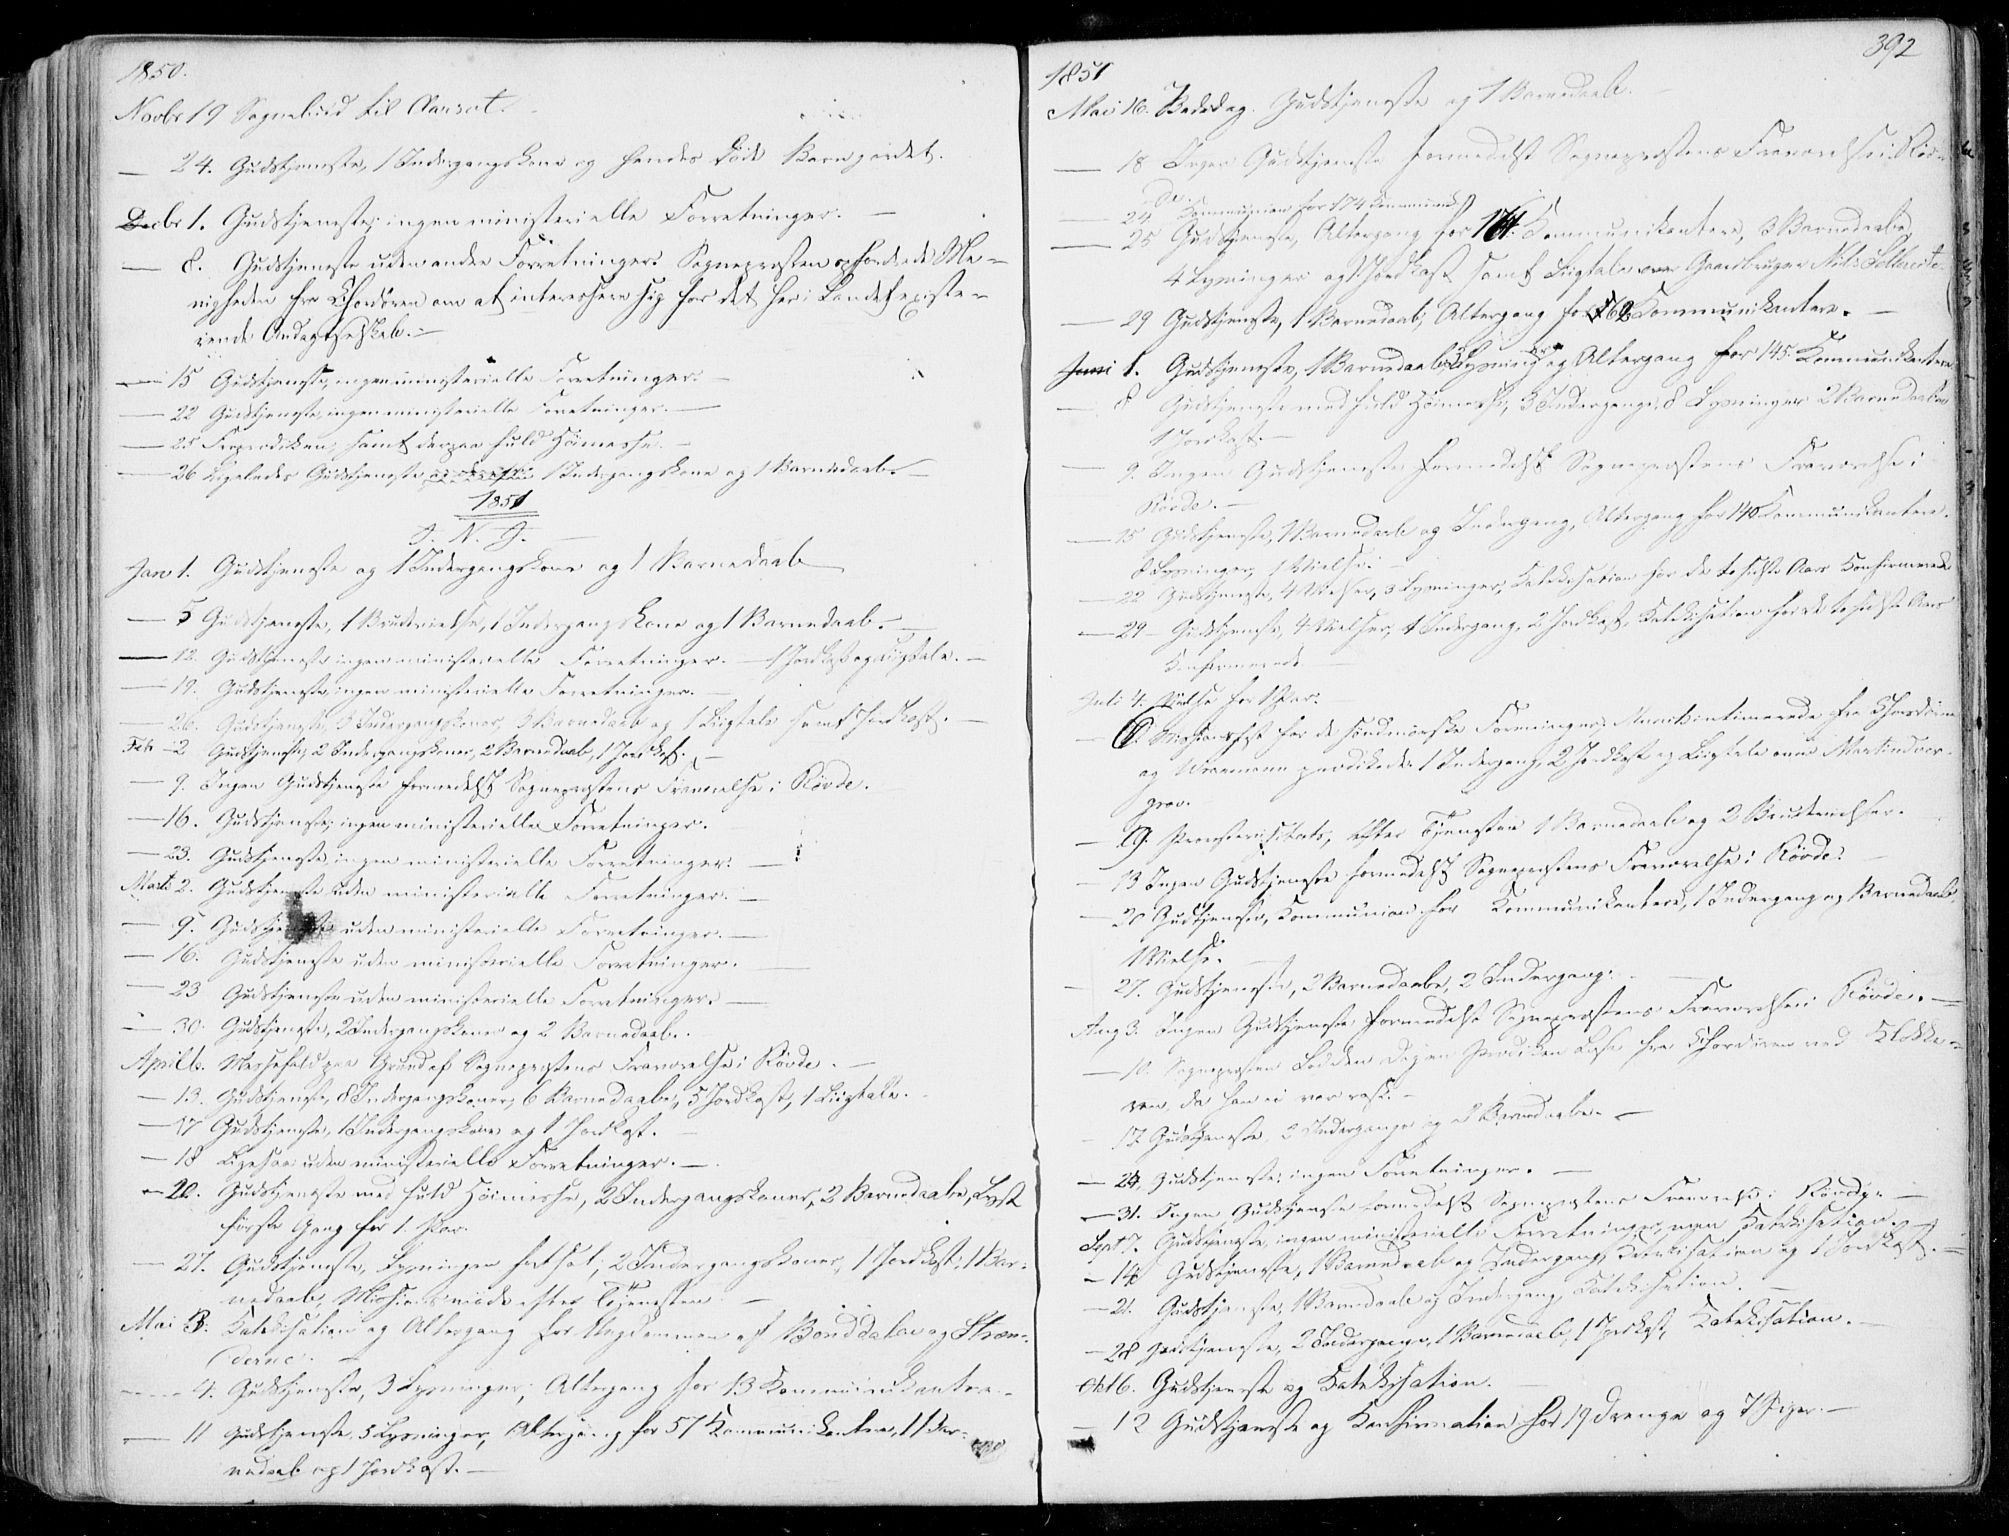 1850.
Novbr 19 Sognebud til Aarsæt.
— 24. Gudstjeneste, 1 Indgangskone og hendes døde Barn jordet.
Decbr 1. Gudstjeneste; ingen ministerielle Forretninger. —
— 8. Gudstjeneste uden andre Forretninger. Sognepræsten opfordrede Me-
nigheden fra Chordøren om at interessere sig for det her i Landet existe-
rende
— 15 Gudstjeneste, ingen ministerielle Forretninger. —
— 22 Gudstjeneste, ingen ministerielle Forretninger. —
— 25 samt derpaa fuld Høimesse. —
— 26 Ligeledes Gudstjeneste 1 Indgangskone og 1 Barnedaab. —
1851
I. N. J.
Jan 1. Gudstjeneste og 1 Indgangskone og 1 Barnedaab
— 5 Gudstjeneste, 1 Brudevielse, 1 Indgangskone og 1 Barnedaab. —
— 12. Gudstjeneste ingen ministerielle Forretninger. — 1 Jordkast og Liigtale. —
— 19. Gudstjeneste, ingen ministerielle Forretninger. —
— 26. Gudstjeneste, 3 Indgangskoner, 3 Barnedaab og 1 Liigtale samt Jordkast. —
Feb — 2 Gudstjeneste, 2 Indgangskoner, 2 Barnedaab, 1 Jordkast. —
— 9. Ingen Gudstjeneste formedelst Sognepræstens Fraværelse i Rövde.
— 16. Gudstjeneste; ingen ministerielle Forretninger.
— 23. Gudstjeneste ingen ministerielle Forretninger. —
Marts 2. Gudstjeneste uden ministerielle Forretninger. —
— 9. Gudstjeneste uden ministerielle Forretninger. —
— 16. Gudstjeneste uden ministerielle Forretninger. —
— 23 Gudstjeneste uden ministerielle Forretninger. —
— 30. Gudstjeneste, 2 Indgangskoner og 2 Barnedaab.
April 6. Messefald paa Grund af Sognepræstens Fraværelse i Rövde. —
— 13. Gudstjeneste, 8 Indgangskoner, 6 Barnedaabe, 5 Jordkast, 1 Liigtale.
— 17 Gudstjeneste, 1 Indgangskone og 1 Jordkast. —
— 18 Ligesaa uden ministerielle Forretninger. —
— 20. Gudstjeneste med fuld Höimesse, 2 Indgangskoner, 2 Barnedaabe, Lyst
første Gang for 1. Par.
— 27. Gudstjeneste, Lysningen fortsat; 2 Indgangskoner, 1 Jordkast, 1 Bar-
nedaab, Missionsmöde efter Tjenesten. —
Mai 3. Katekisation og Altergang for Ungdommen af Bonddalen og Stran-
derne. —
— 4. Gudstjeneste, 3 Lysninger; Altergang for 13 Kommunikantere. —
— 11 Gudstjeneste, 5 Lysninger, Altergang for 57 Kommunikantere, 1 Bar-
nedaab og 1 Jordkast. —
392
1851
Mai 16. Bededag. Gudstjeneste og 1 Barnedaab. —
— 18 Ingen Gudstjeneste formedelst Sognepræstens Fraværelse i Röv-
de.
— 24. Kommunion for 174 Kommunik.
— 25 Gudstjeneste, Altergang for Kommunikantere, 3 Barnedaabe,
4 Lysninger og 1 Jordkast samt Liigtale over Gaardbruger Nils
— 29 Gudstjeneste, 1 Barnedaab, Altergang for 162 Kommunikantere. —
Juni 1. Gudstjeneste, 1 Barnedaab, Lysning og Altergang for 145. Kommunikantere
— 8 Gudstjeneste med fuld Höimesse, 3 Indgange, 8 Lysninger 2 Barnedaabe
1 Jordkast. —
— 9. Ingen Gudstjeneste formedelst Sognepræstens Fraværelse i
Rövde. —
— 15 Gudstjeneste, 1 Barnedaab og Indgang, Altergang for 140 Kommunikantere.
8 Lysninger, 1 Vielse. —
— 22 Gudstjeneste, 4 Vielser, 3 Lysninger, Katekisation for de to sidste Aars Konfirmerede
— 29 — Gudstjeneste, 4 Vielser, 1 Indgang, 2 Jordkast, Katekisation for de to sidste Aars
Konfirmerede. —
Juli 4. Vielse for 1 Par.
— 6. Missionsfest for de söndmørske Foreninger; fra Chordøren
og prædikede. 1 Indgang, 2 Jordkast og Liigtale over
— 9. Provstevisitats, efter Tjenesten 1 Barnedaab og 2 Brudevielser.
— 13 Ingen Gudstjeneste formedelst Sognepræstens Fraværelse i Rövde. —
— 20 Gudstjeneste, Kommunion for Kommunikantere, 1 Indgang og 1 Barnedaab,
1 Vielse. —
— 27. Gudstjeneste, 2 Barnedaabe, 2 Indgang. —
Aug 3. Ingen Gudstjeneste formedelst Sognepræstens Fraværelse i Rövde. —
— 10. Sognepræsten Prædiken læse fra Chordören ved Klokke-
ren, da han ei var rask. —
— 17 Gudstjeneste, 2 Indgange og 2 Barnedaabe. —
— 24, Gudstjeneste; ingen Forretninger. —
— 31. Ingen Gudstjeneste formedelst Sognepræstens Fraværelse i Rövde. —
Sept 7. Gudstjeneste, ingen ministerielle Forretninger, men Katekisation. —
— 14 Gudstjeneste, 1 Barnedaab og Indgang, Katekisation og 1 Jordkast. —
— 21. Gudstjeneste, 1 Barnedaab og Indgang, Katekisation. —
— 28 Gudstjeneste, 2 Indgange, 1 Barnedaab, 1 Jordkast, Katekisation. —
Okt 6. Gudstjeneste og Katekisation. —
— 12 Gudstjeneste og Konfirmation for 19 Drenge og 7 Piger. —